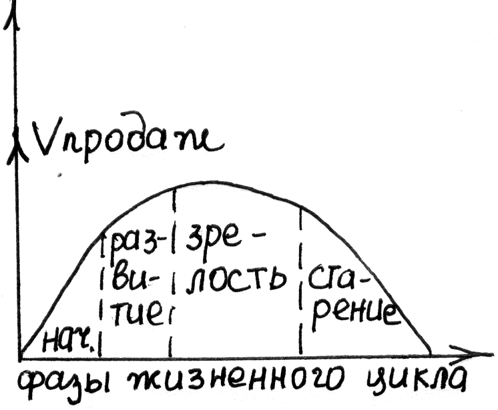 Vпродаж
нач.
раз-
ви-
тие
зре-
лость
ста-
рение
фазы жизненного цикла